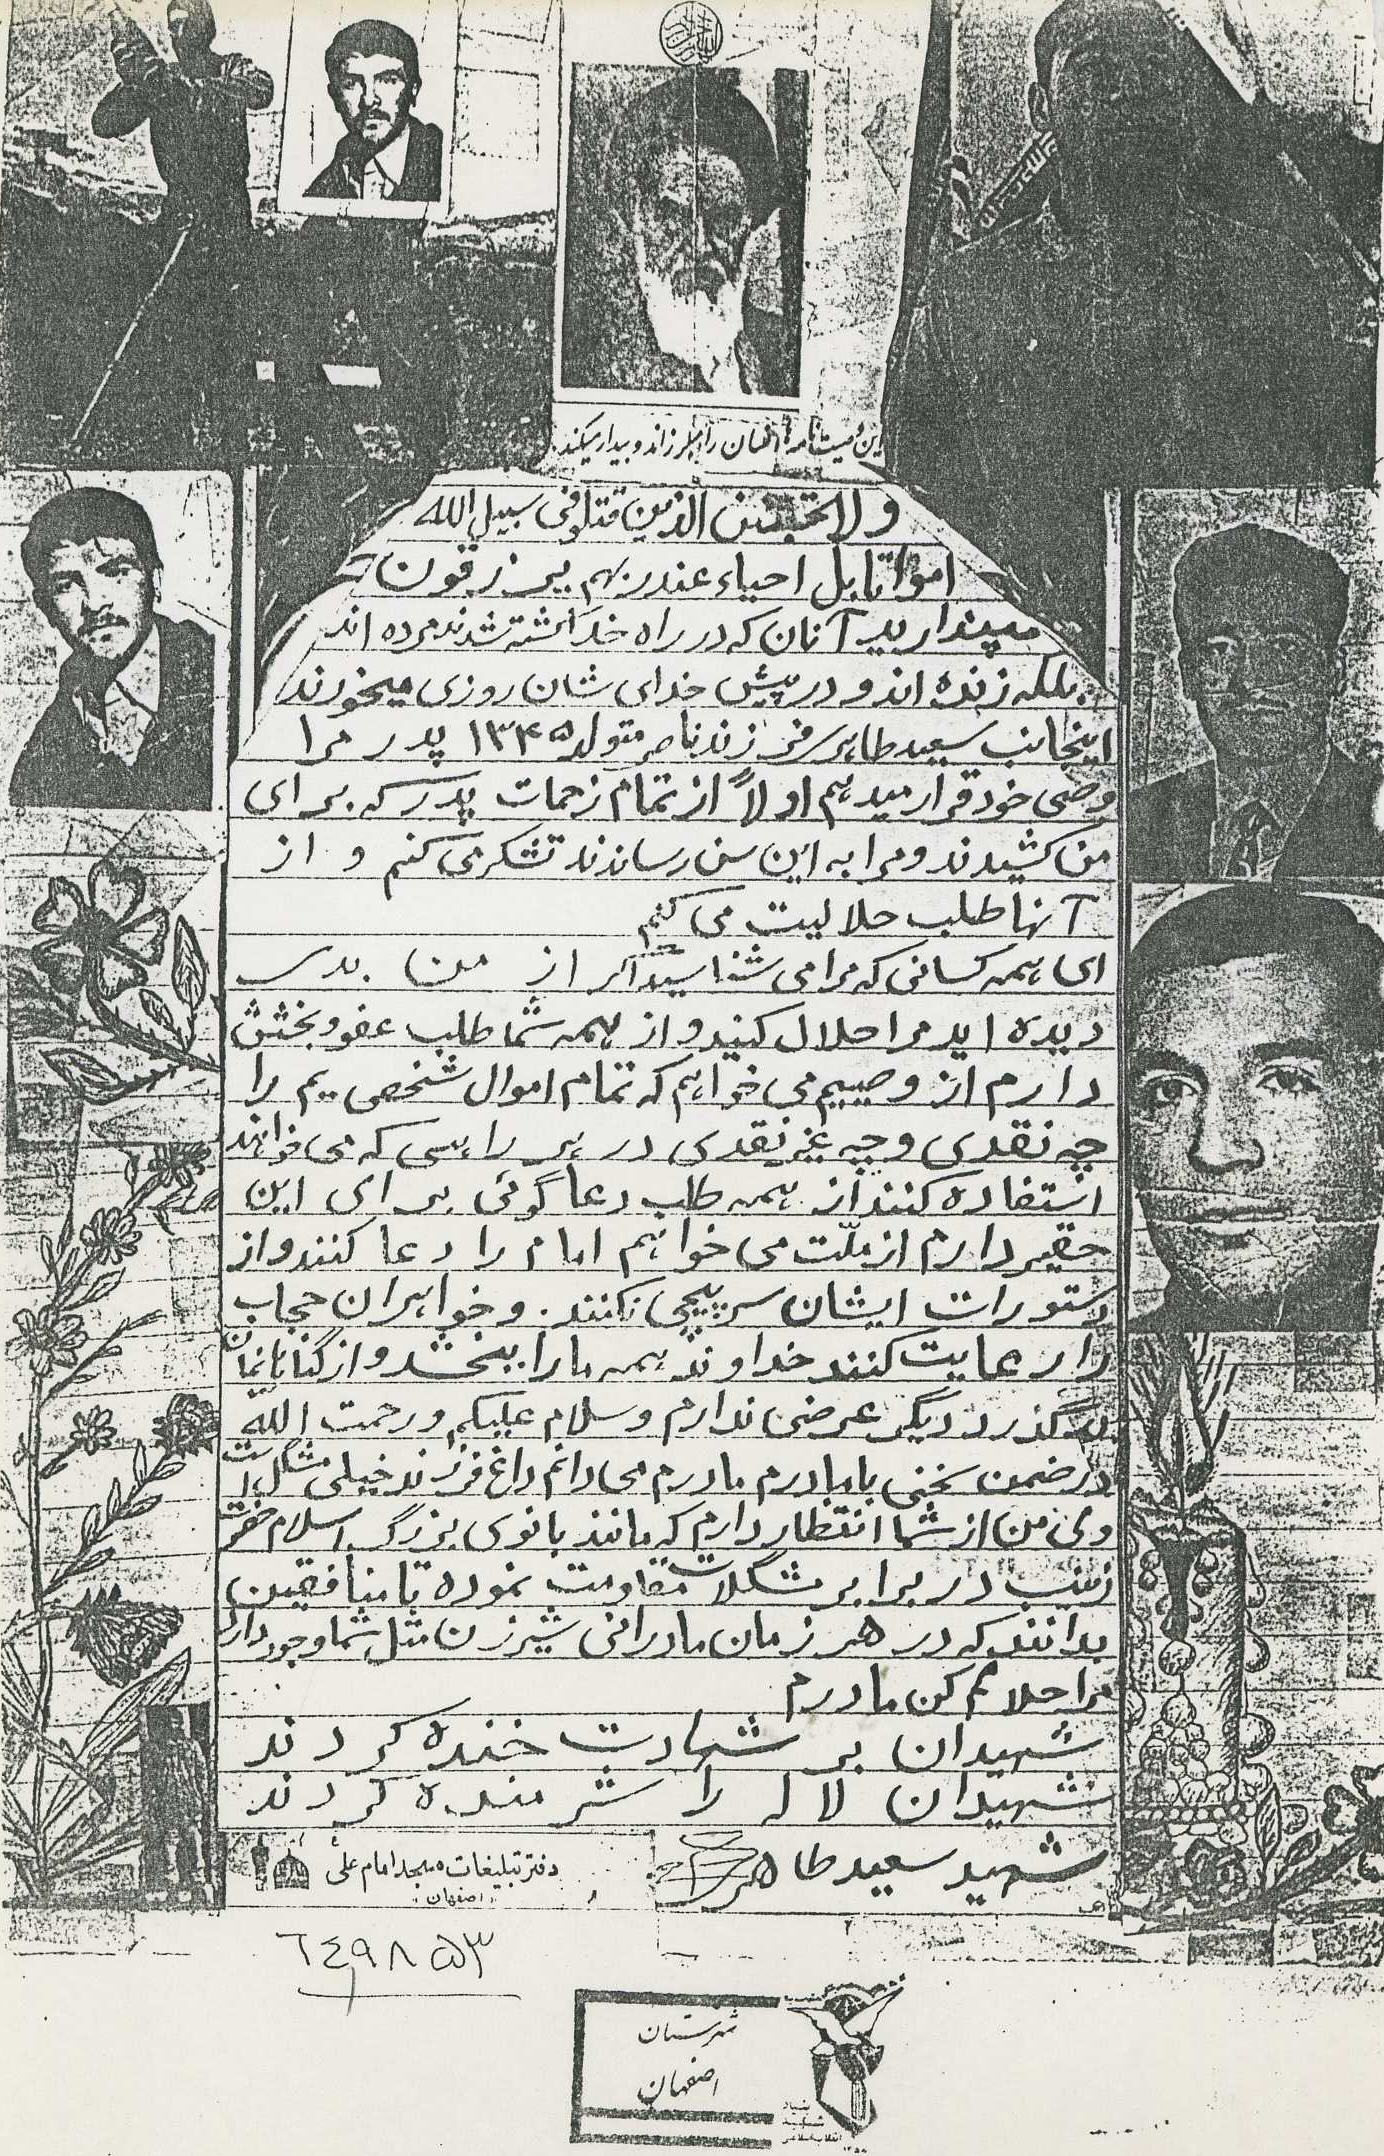 این وصیت نامه انسان را میلرزاند و بیدار میکند.
ولا تحسبن الذین قتلو فی سبیل الله
امواتا بل احیاء عند ربهم یرزقون
مپندارید آنان که در راه خدا کشته شدند مرده اند
بلکه زنده اند و در پیش خدای شان روزی میخورند
اینجانب سعید طاهری فرزند ناصر متولد ۱۳۴۵ پدر مرا
وصی خود قرار میدهم اولاً از تمام زحمات پدر که برای
من کشیدند و مرا به این سن رساندند تشکر می کنم و از
آنها طلب حلالیت می کنم
ای همه کسانی که مرا می شناسید اگر از من بدی
دیده اید مرا حلال کنید و از همه شما طلب عفو و بخشش
دارم از وصییم می خواهم که تمام اموال شخصی یم را
چه نقدی و چه غیر نقدی در هر راهی که می خواهند
استفاده کنند از همه طلب دعا گوئی برای این
حقیر دارم از ملّت می خواهم امام را دعا کنند و از
دستورات ایشان سرپیچی نکنند. و خواهران حجاب
را رعایت کنند خداوند همه ما را ببخشد و از گناهانمان
بگذرد دیگر عرضی ندارم وسلام علیکم و رحمت الله
در ضمن سخنی با مادرم مادرم می دانم داغ فرزند خیلی مشکل است
ولی من از شما انتظار دارم که مانند بانوی بزرگ اسلام حضرت
زینب در برابر مشکلات مقاومت نموده تا منافقین
بدانند که در هر زمان مادرانی شیرزن مثل شما وجود دارد
مرا حلالم کن مادرم
شهیدان بر شهادت خنده کردند
شهیدان لاله را شرمنده کردند
شهید سعید طاهری
دفتر تبلیغات مسجد امام علی
(اصفهان)
٦٤٩٨٥٣
شهرستان
اصفهان
بنیاد
شهید
انقلاب اسلامی